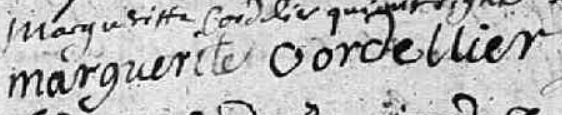 Margueritte Cordelier qui
marguerite Cordellier